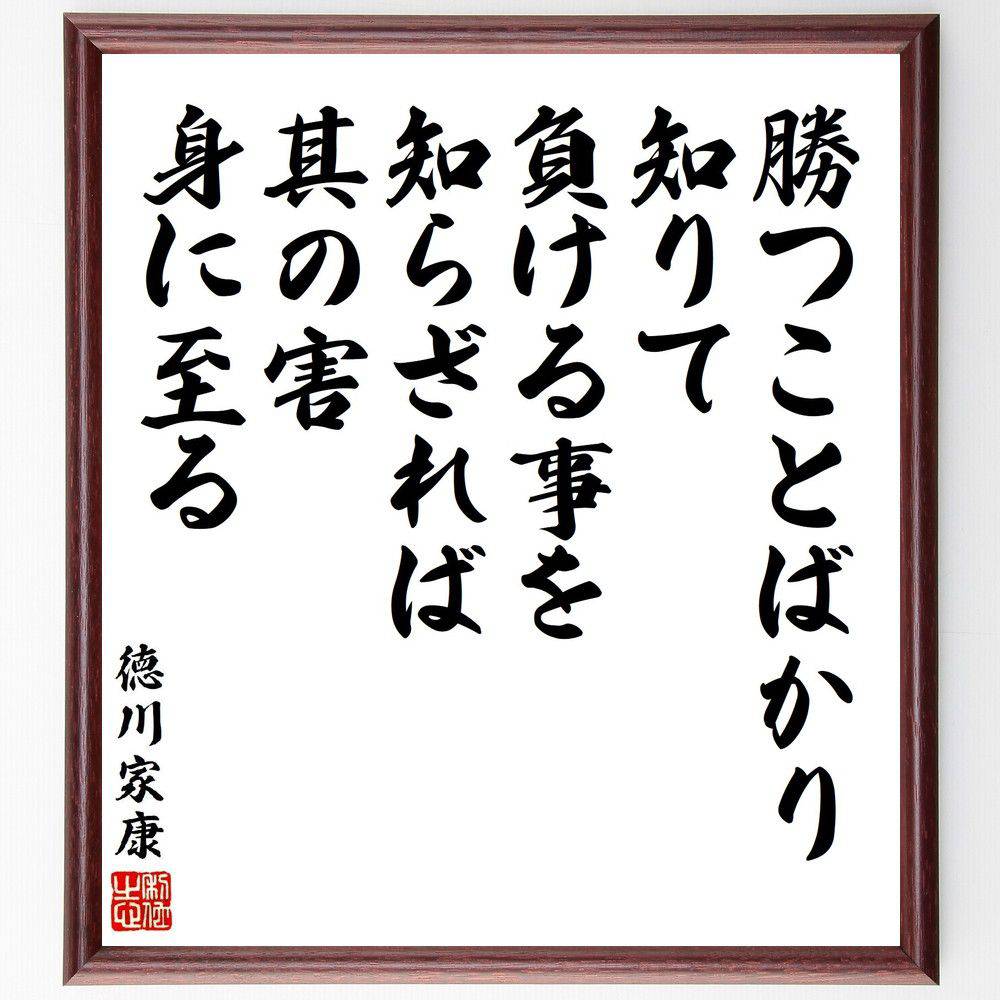 勝つことばかり
知りて
負ける事を
知らざれば
其の害
身に至る
徳川家康